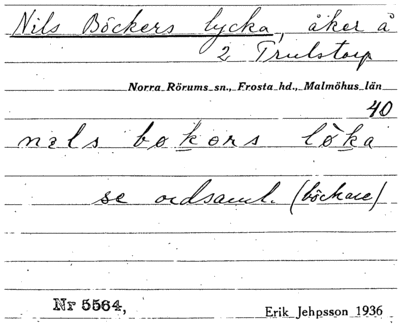 Nils Böckers lycka, åker å
2 Trulstorp
Norra Rörums sn., Frosta hd., Malmöhus län
40
nels bøkørs lø̀ka
se ordsaml. (böckare)
Nr 5564,
Erik Jehpsson 1936